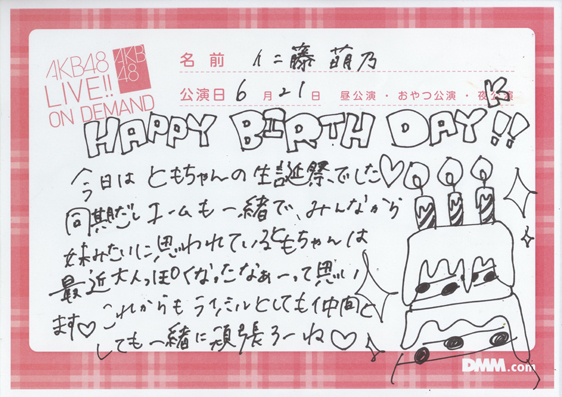 AKB48
LIVE!!
ON DEMAND
AKB
48
名前 仁藤 萌乃
公演日 6月21日 昼公演・おやつ公演・夜公演
HAPPY BIRTH DAY!!
今日は ともちゃんの生誕祭でした♡
同期だし チームも一緒で、みんなから
妹みたいに思われているともちゃんは
最近大人っぽくなったなぁーって思い
ます♡ これからもライバルとしても仲間と
しても一緒に頑張ろーね♡
DMM.com